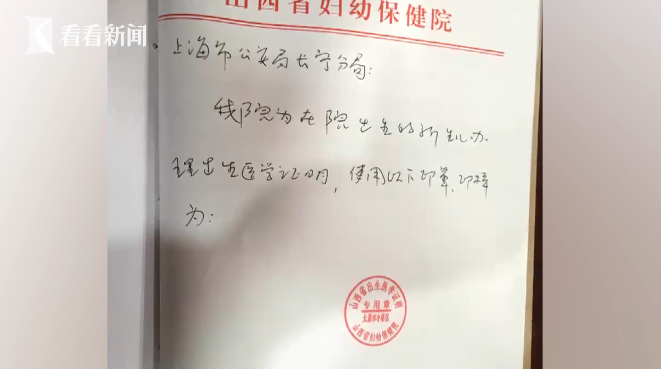 看看新闻
山西省妇幼保健院
上海市公安局长宁分局：
我院为在院出生的新生儿办
理出生医学证明，使用以下印章，印样
为：
山西省出生医学证明
专用章
山西省妇幼保健院